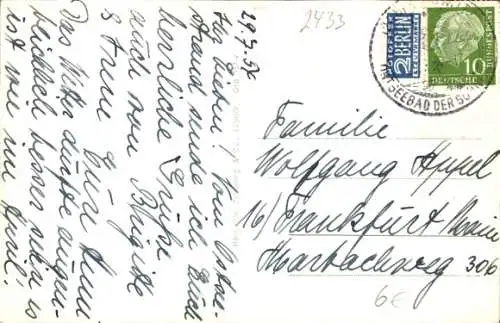 29.5.57
Ihr Lieben! Vom Ostsee-
strand sende ich Euch
herrliche Grüße
auch von Brigitte
Eure
Das Wetter dürfte augen-
blicklich besser sein es
ist wie im April!
2433
NOTOPFER
2 BERLIN
STEUERMARKE
10
DEUTSCHE
BUNDESPOST
SEEBAD DER
Familie
Wolfgang Appel
16/ Frankfurt/Main
Marbachweg 306
6€